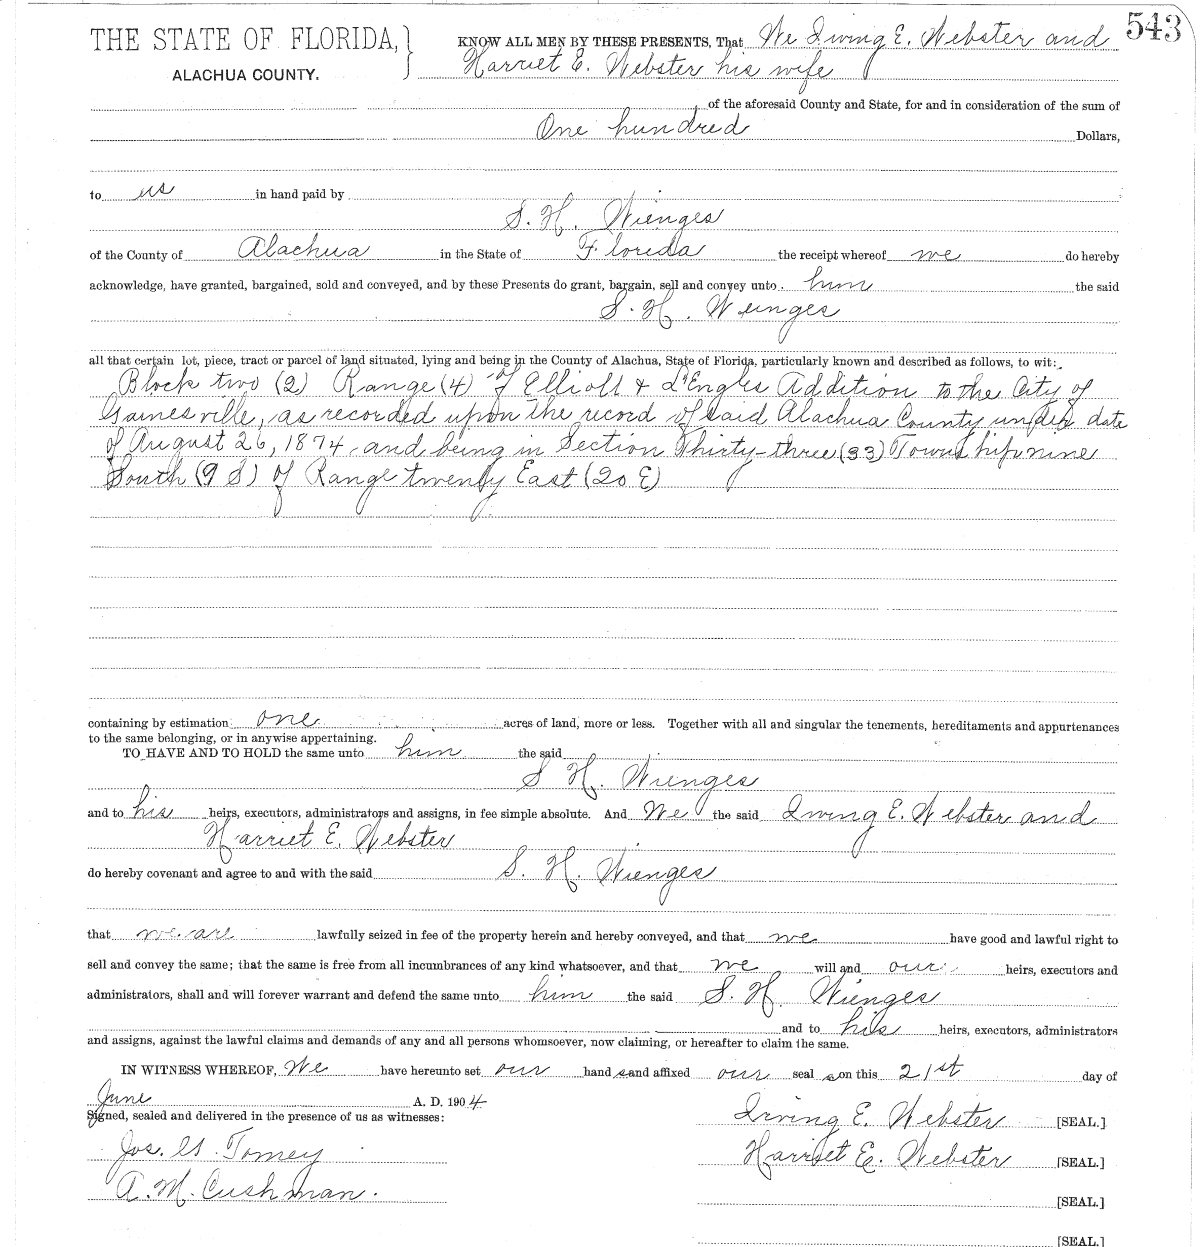 543
THE STATE OF FLORIDA,
ALACHUA COUNTY.
KNOW ALL MEN BY THESE PRESENTS, That We Irving E. Webster and
Harriet E. Webster his wife
of the aforesaid County and State, for and in consideration of the sum of
One hundred Dollars,
to us in hand paid by
S. H. Wienges
of the County of Alachua in the State of Florida the receipt whereof we do hereby
acknowledge, have granted, bargained, sold and conveyed, and by these Presents do grant, bargain, sell and convey unto him the said
S. H. Wienges
all that certain lot, piece, tract or parcel of land situated, lying and being in the County of Alachua, State of Florida, particularly known and described as follows, to wit:
Block two (2) Range (4) of Elliott & L'Engles Addition to the City of
Gainesville, as recorded upon the record of said Alachua County under date
of August 26, 1874 and being in Section Thirty-three (33) Township nine
South (9 S) of Range twenty East (20 E)
containing by estimation one acres of land, more or less. Together with all and singular the tenements, hereditaments and appurtenances
to the same belonging, or in anywise appertaining.
TO HAVE AND TO HOLD the same unto him the said
S H. Wienges
and to his heirs, executors, administrators and assigns, in fee simple absolute. And We the said Irving E. Webster and
Harriet E. Webster
do hereby covenant and agree to and with the said S. H. Wienges
that we are lawfully seized in fee of the property herein and hereby conveyed, and that we have good and lawful right to
sell and convey the same; that the same is free from all incumbrances of any kind whatsoever, and that we will and our heirs, executors and
administrators, shall and will forever warrant and defend the same unto him the said S. H. Wienges
and to his heirs, executors, administrators
and assigns, against the lawful claims and demands of any and all persons whomsoever, now claiming, or hereafter to claim the same.
IN WITNESS WHEREOF, We have hereunto set our hand s and affixed our seal s on this 21st day of
June A. D. 1904
Signed, sealed and delivered in the presence of us as witnesses:
Irving E. Webster [SEAL.]
Jos. W. Tomey
Harriet E. Webster [SEAL.]
A. M. Cushman.
[SEAL.]
[SEAL.]